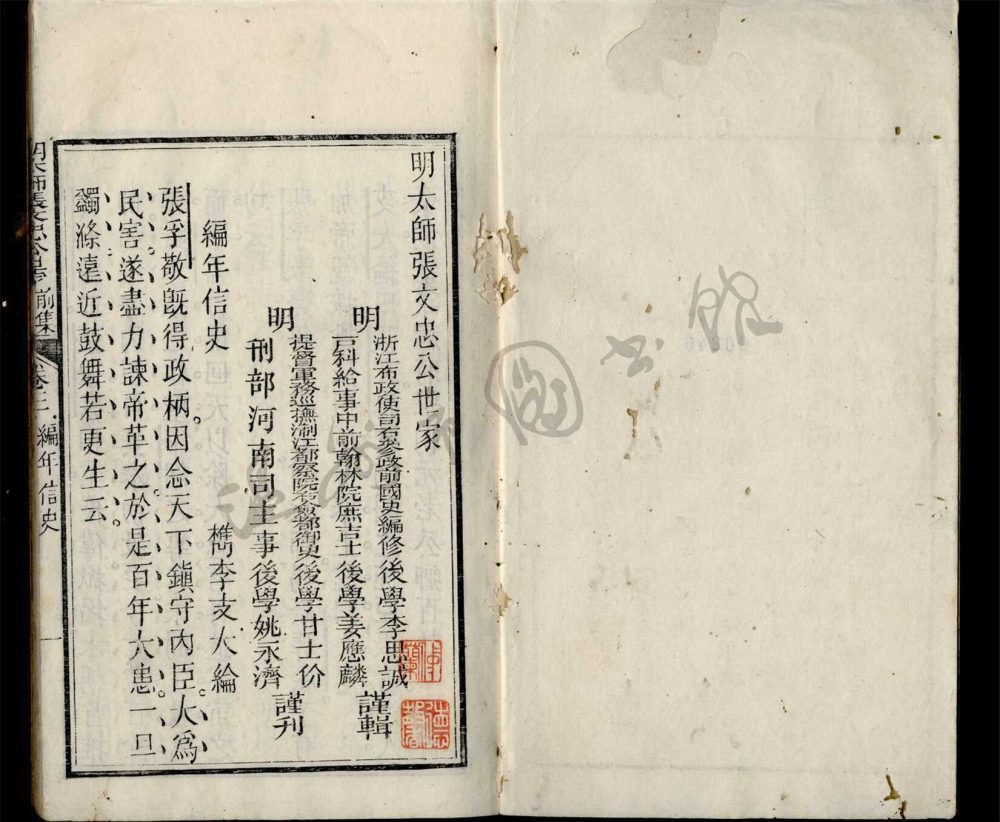 明太師張文忠公世家
明
浙江布政使司右叅政前國史編修後學李思誠
言科給事中前翰林院庶吉士後學姜應麟
謹輯
明
提督軍務巡撫浙江都察院右僉都御史後學甘士价
刑部河南司主事後學姚永濟
謹刋
編年信史
檇李支大綸
張孚敬旣得政柄。因念天下鎮守內臣。大爲
民害。遂盡力諫帝革之。於是百年大患。一旦
蠲滌。遠近鼓舞若更生云
編年信史